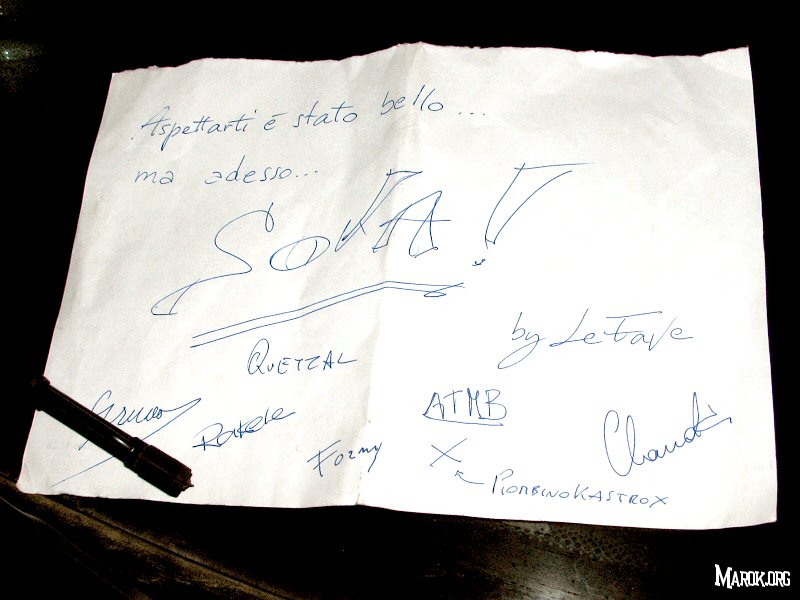 Aspettarti è stato bello...
ma adesso...
SOKA!
by LeFave
QUETZAL
ATMB
Formy
X
PIOMBINOKASTROX
MAROK.ORG